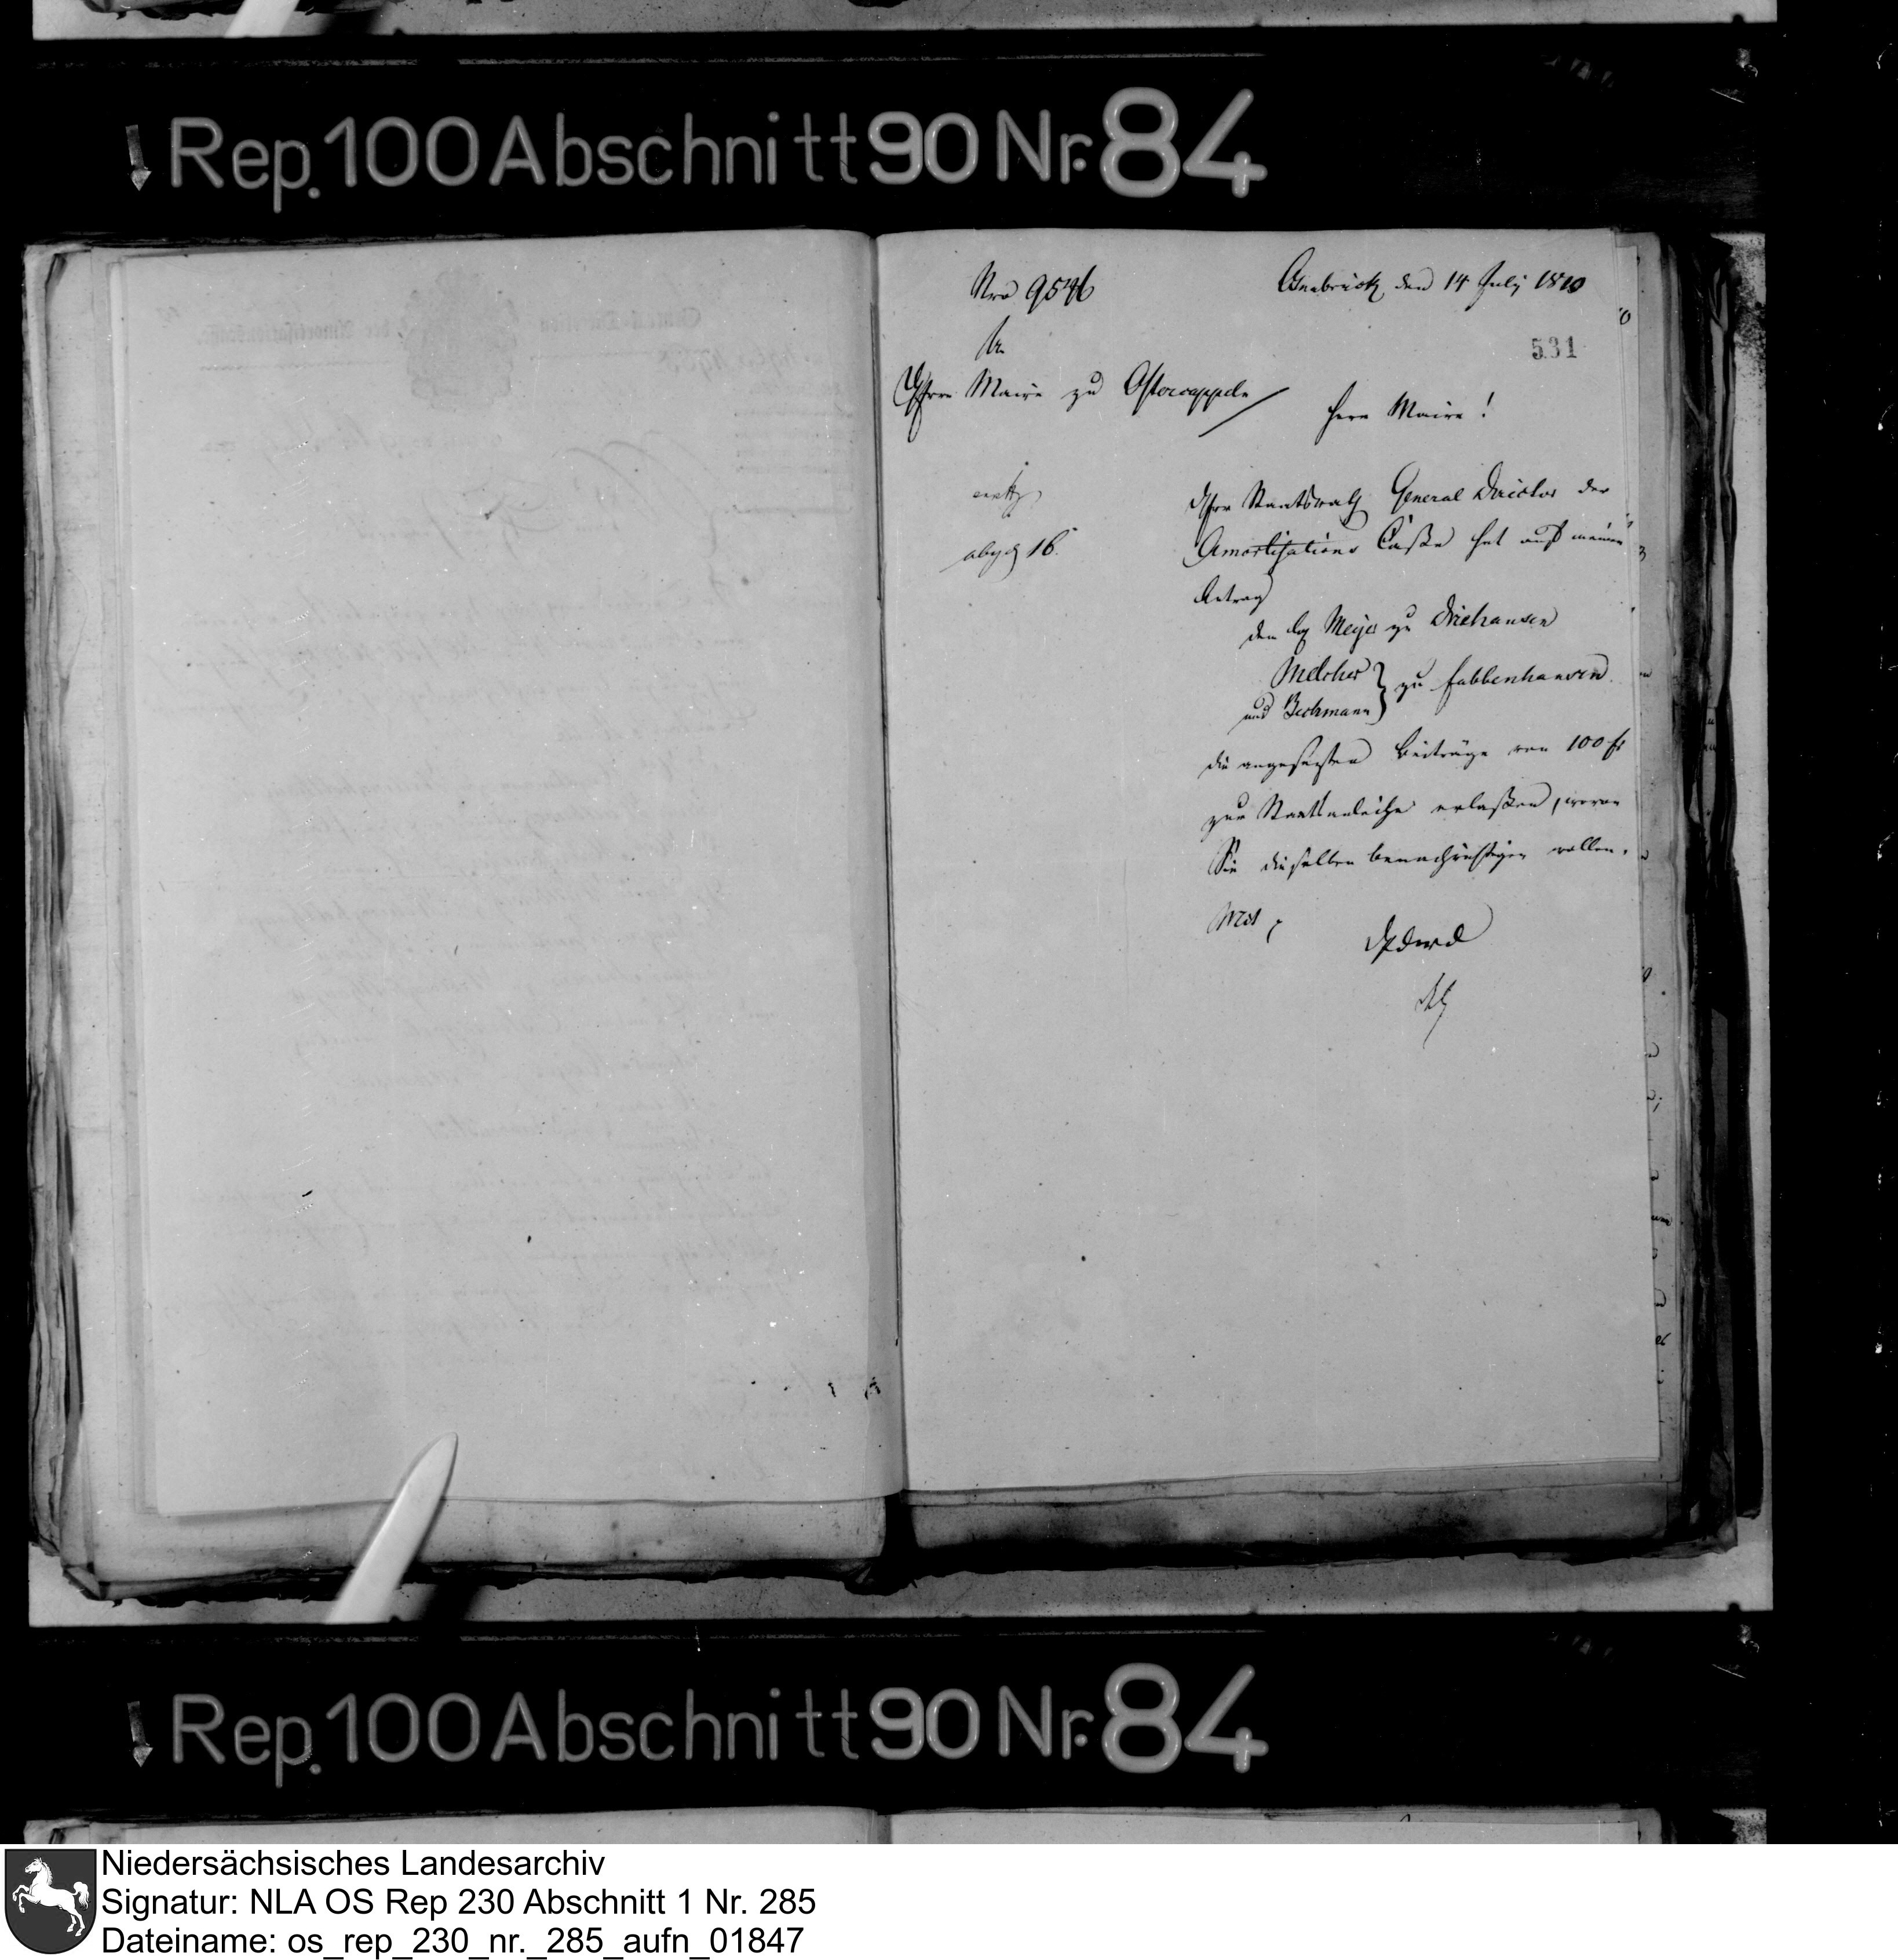 Rep. 100 Abschnitt 90 Nr. 84
Nro 9546
Osnabrück den 14 July 1810
An
531
Herrn Maire zu Ostercappeln
Herr Maire!
abgeg 16.
Herr Staatsrath General Director der
Amortisations Casse hat auf meinen
Antrag
den Meyer zu Driehausen
Melcher
und Bechmann } zu Jabbenhausen
die angesetzten Beiträge von 100 fr
zur Staatsanleihe erlaßen, wovon
Sie dieselben benachrichtigen wollen.
Rep. 100 Abschnitt 90 Nr. 84
Niedersächsisches Landesarchiv
Signatur: NLA OS Rep 230 Abschnitt 1 Nr. 285
Dateiname: os_rep_230_nr._285_aufn_01847